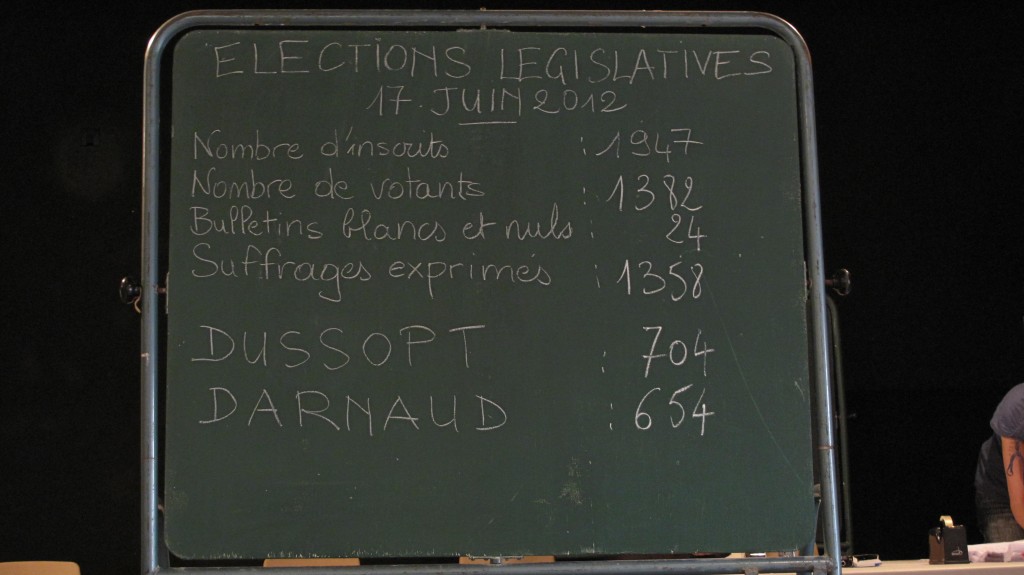 ELECTIONS LEGISLATIVES
17. JUIN 2012
Nombre d'inscrits : 1947
Nombre de votants : 1382
Bulletins blancs et nuls : 24
Suffrages exprimés : 1358
DUSSOPT : 704
DARNAUD : 654